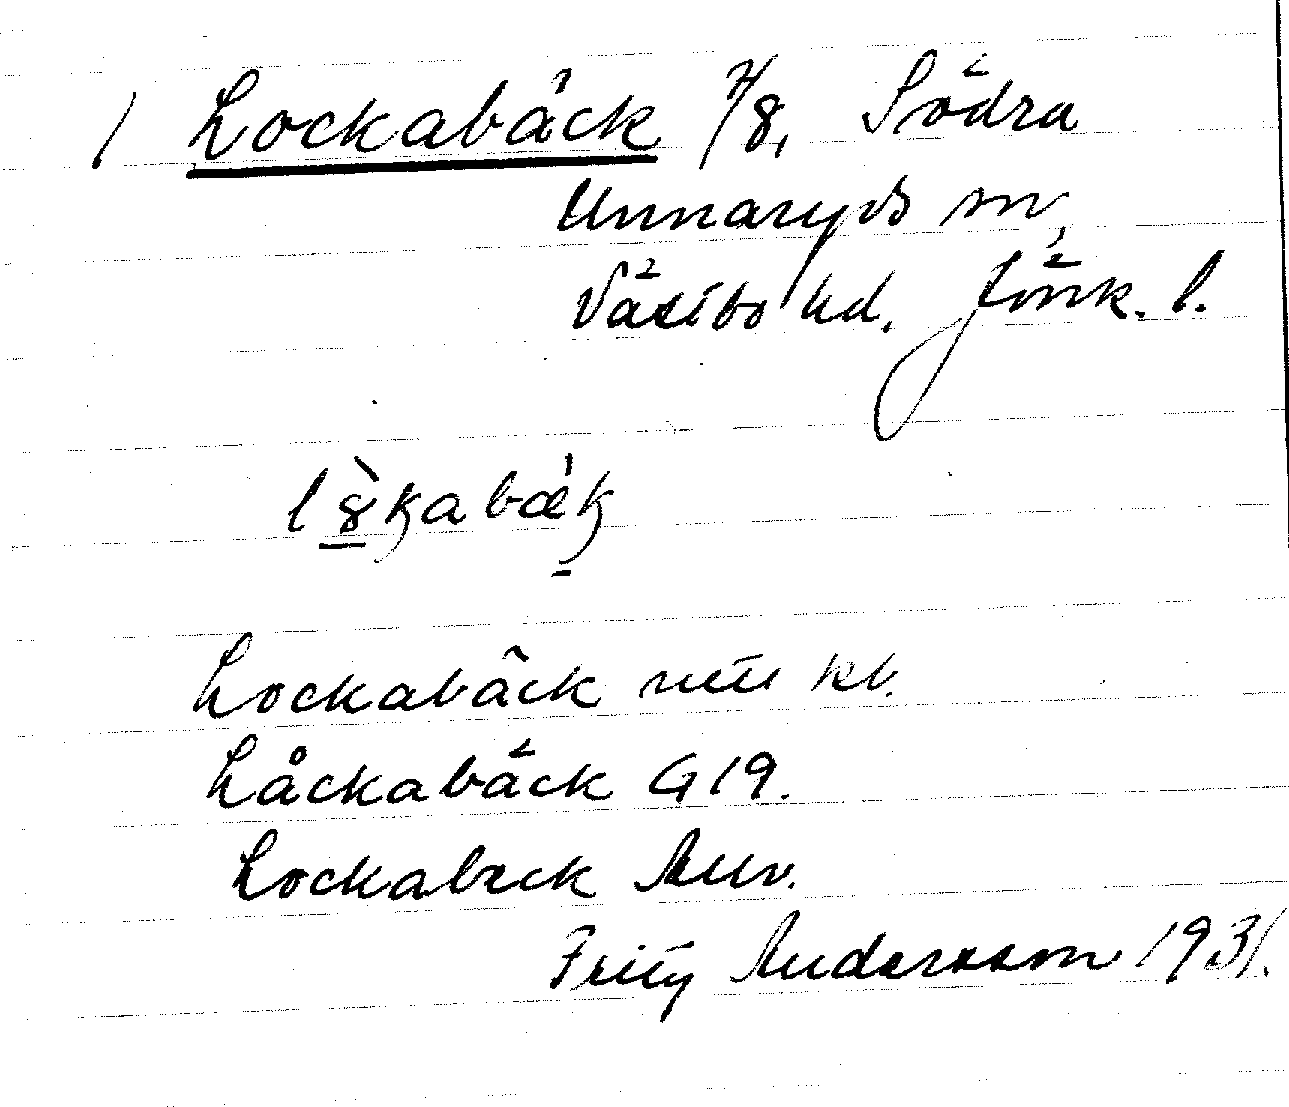 / Lockabäck 7/8, Södra
Unnaryds sn,
Västbo hd. Jönk. l.
Lockabäck kb.
Låckabäck G 19.
Lockabeck
Andersson 1931.